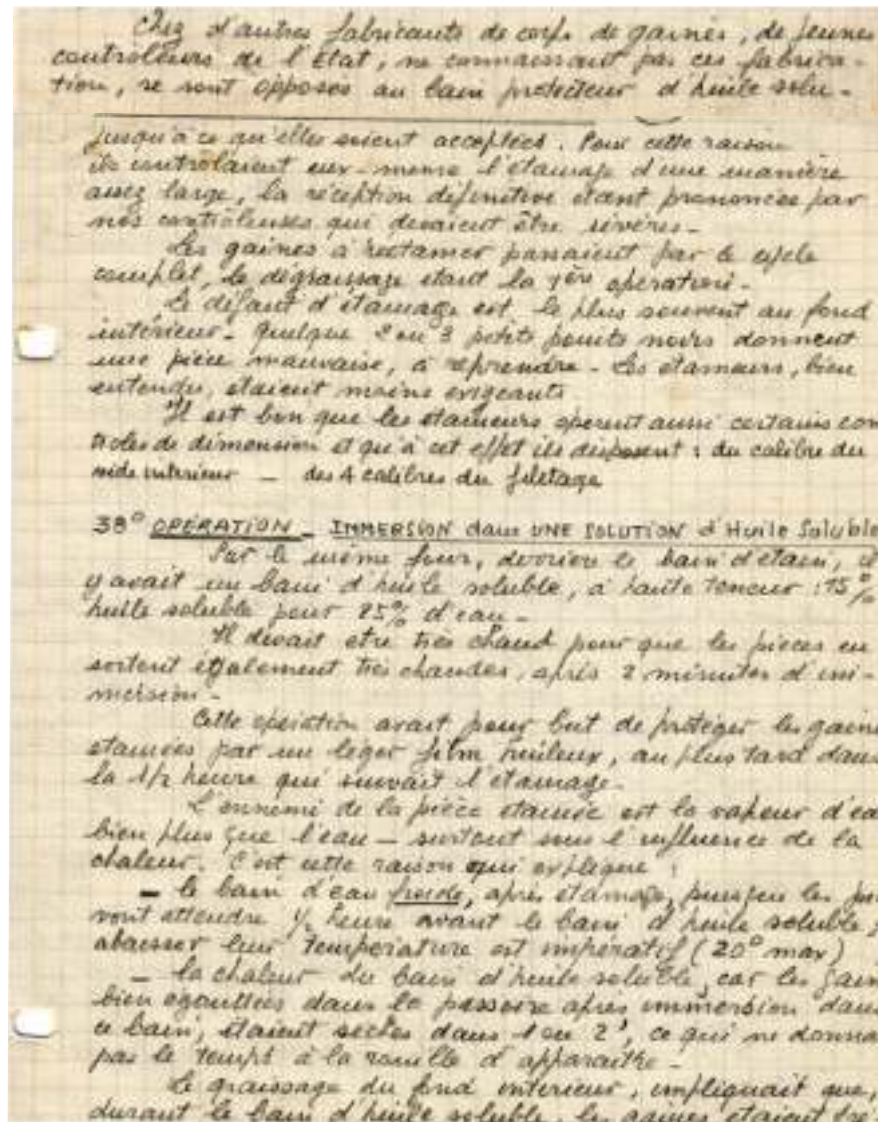 Chez d'autres fabricants de corps de gaines, de jeunes
contrôleurs de l'Etat, ne connaissant pas ces fabrica-
tion, se sont opposés au bain protecteur d'huile solu-
jusqu'à ce qu'elles soient acceptées. Pour cette raison
ils contrôlaient eux-même l'étamage d'une manière
assez large, la réception définitive étant prononcée par
nos contrôleuses qui devaient être sévères-
Les gaines à réétamer passaient par le cycle
complet, le dégraissage étant la 1ère opération-
Le défaut d'étamage est le plus souvent au fond
intérieur- quelque 2 ou 3 petits points noirs donnent
une pièce mauvaise, à reprendre- Les étameurs, bien
entendu, étaient moins exigeants
Il est bon que les étameurs opèrent aussi certains con
troles de dimension et qu'à cet effet ils disposent : du calibre du
vide intérieur - des 4 calibres du filetage
38° OPÉRATION - IMMERSION dans UNE SOLUTION d'Huile Soluble
Sur le même four, derrière le bain d'étain, il
y avait un bain d'huile soluble, à haute teneur : 15%
huile soluble pour 85% d'eau-
Il devait etre très chaud pour que les pièces en
sortent également très chaudes, après 2 minutes d'im-
mersion-
Cette opération avait pour but de protéger les gaine
étamées par un léger film huileux, au plus tard dans
la 1/2 heure qui suivait l'étamage-
L'ennemi de la pièce étamée est la vapeur d'ea
bien plus que l'eau - surtout sous l'influence de la
chaleur. C'est cette raison qui explique :
- le bain d'eau froide, après étamage, puisque les
vont attendre 1/2 heure avant le bain d'huile soluble ;
abaisser leur température est impératif (20° max)
- la chaleur du bain d'huile soluble, car les gain
bien égouttées dans la passoire après immersion dans
ce bain, étaient sèches dans 1 ou 2', ce qui ne donna
pas le temps à la rouille d'apparaître-
Le graissage du fond intérieur, impliquait que,
durant le bain d'huile soluble, les gaines étaient